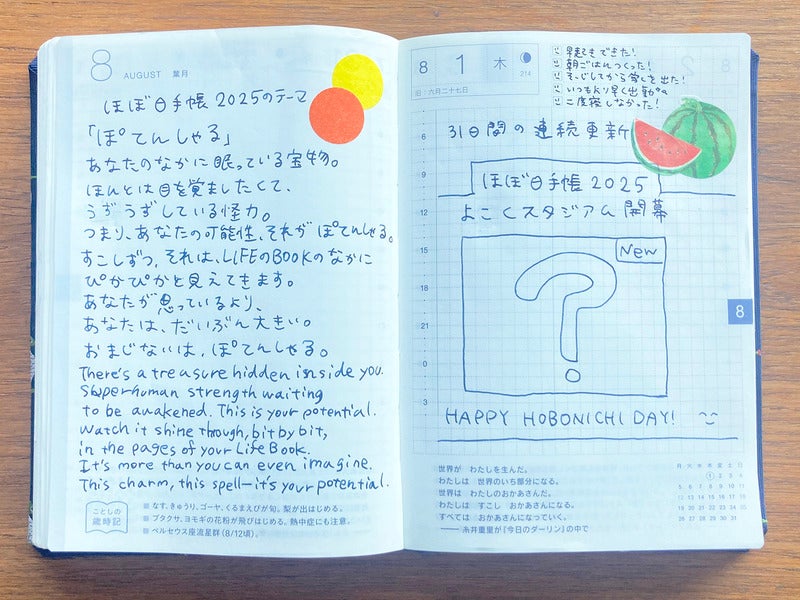 8 AUGUST 葉月
ほぼ日手帳 2025のテーマ
「ぽてんしゃる」
あなたのなかに眠っている宝物。
ほんとは目を覚ましたくて、
うずうずしている怪力。
つまり、あなたの可能性、それが ぽてんしゃる。
すこしずつ、それは、LIFEのBOOKのなかに
ぴかぴかと見えてきます。
あなたが思っているより、
あなたは、だいぶん大きい。
おまじないは、ぽてんしゃる。
There's a treasure hidden inside you.
Superhuman strength waiting
to be awakened. This is your potential.
Watch it shine through, bit by bit,
in the pages of your Life Book.
It's more than you can even imagine.
This charm, this spell—it's your potential.
ことしの
歳時記
なす、きゅうり、ゴーヤ、くるまえびが旬。梨が出はじめる。
ブタクサ、ヨモギの花粉が飛びはじめる。熱中症にも注意。
ペルセウス座流星群(8/12頃)。
8 1 木
214
旧:六月二十七日
早起きできた!
朝ごはんつくった!
そうじしてから家を出た!
いつもより早く出勤
二度寝しなかった!
6
31日間の連続更新
9
ほぼ日手帳 2025
12
よこくスタジアム 開幕
15
New
?
18
21
0
3
8
HAPPY HOBONICHI DAY!
世界が わたしを生んだ。
わたしは 世界のいち部分になる。
世界は わたしのおかあさんだ。
わたしは すこし おかあさんになる。
すべては おかあさんになっていく。
――糸井重里が『今日のダーリン』の中で
月 火 水 木 金 土 日
1 2 3 4
5 6 7 8 9 10 11
12 13 14 15 16 17 18
19 20 21 22 23 24 25
26 27 28 29 30 31